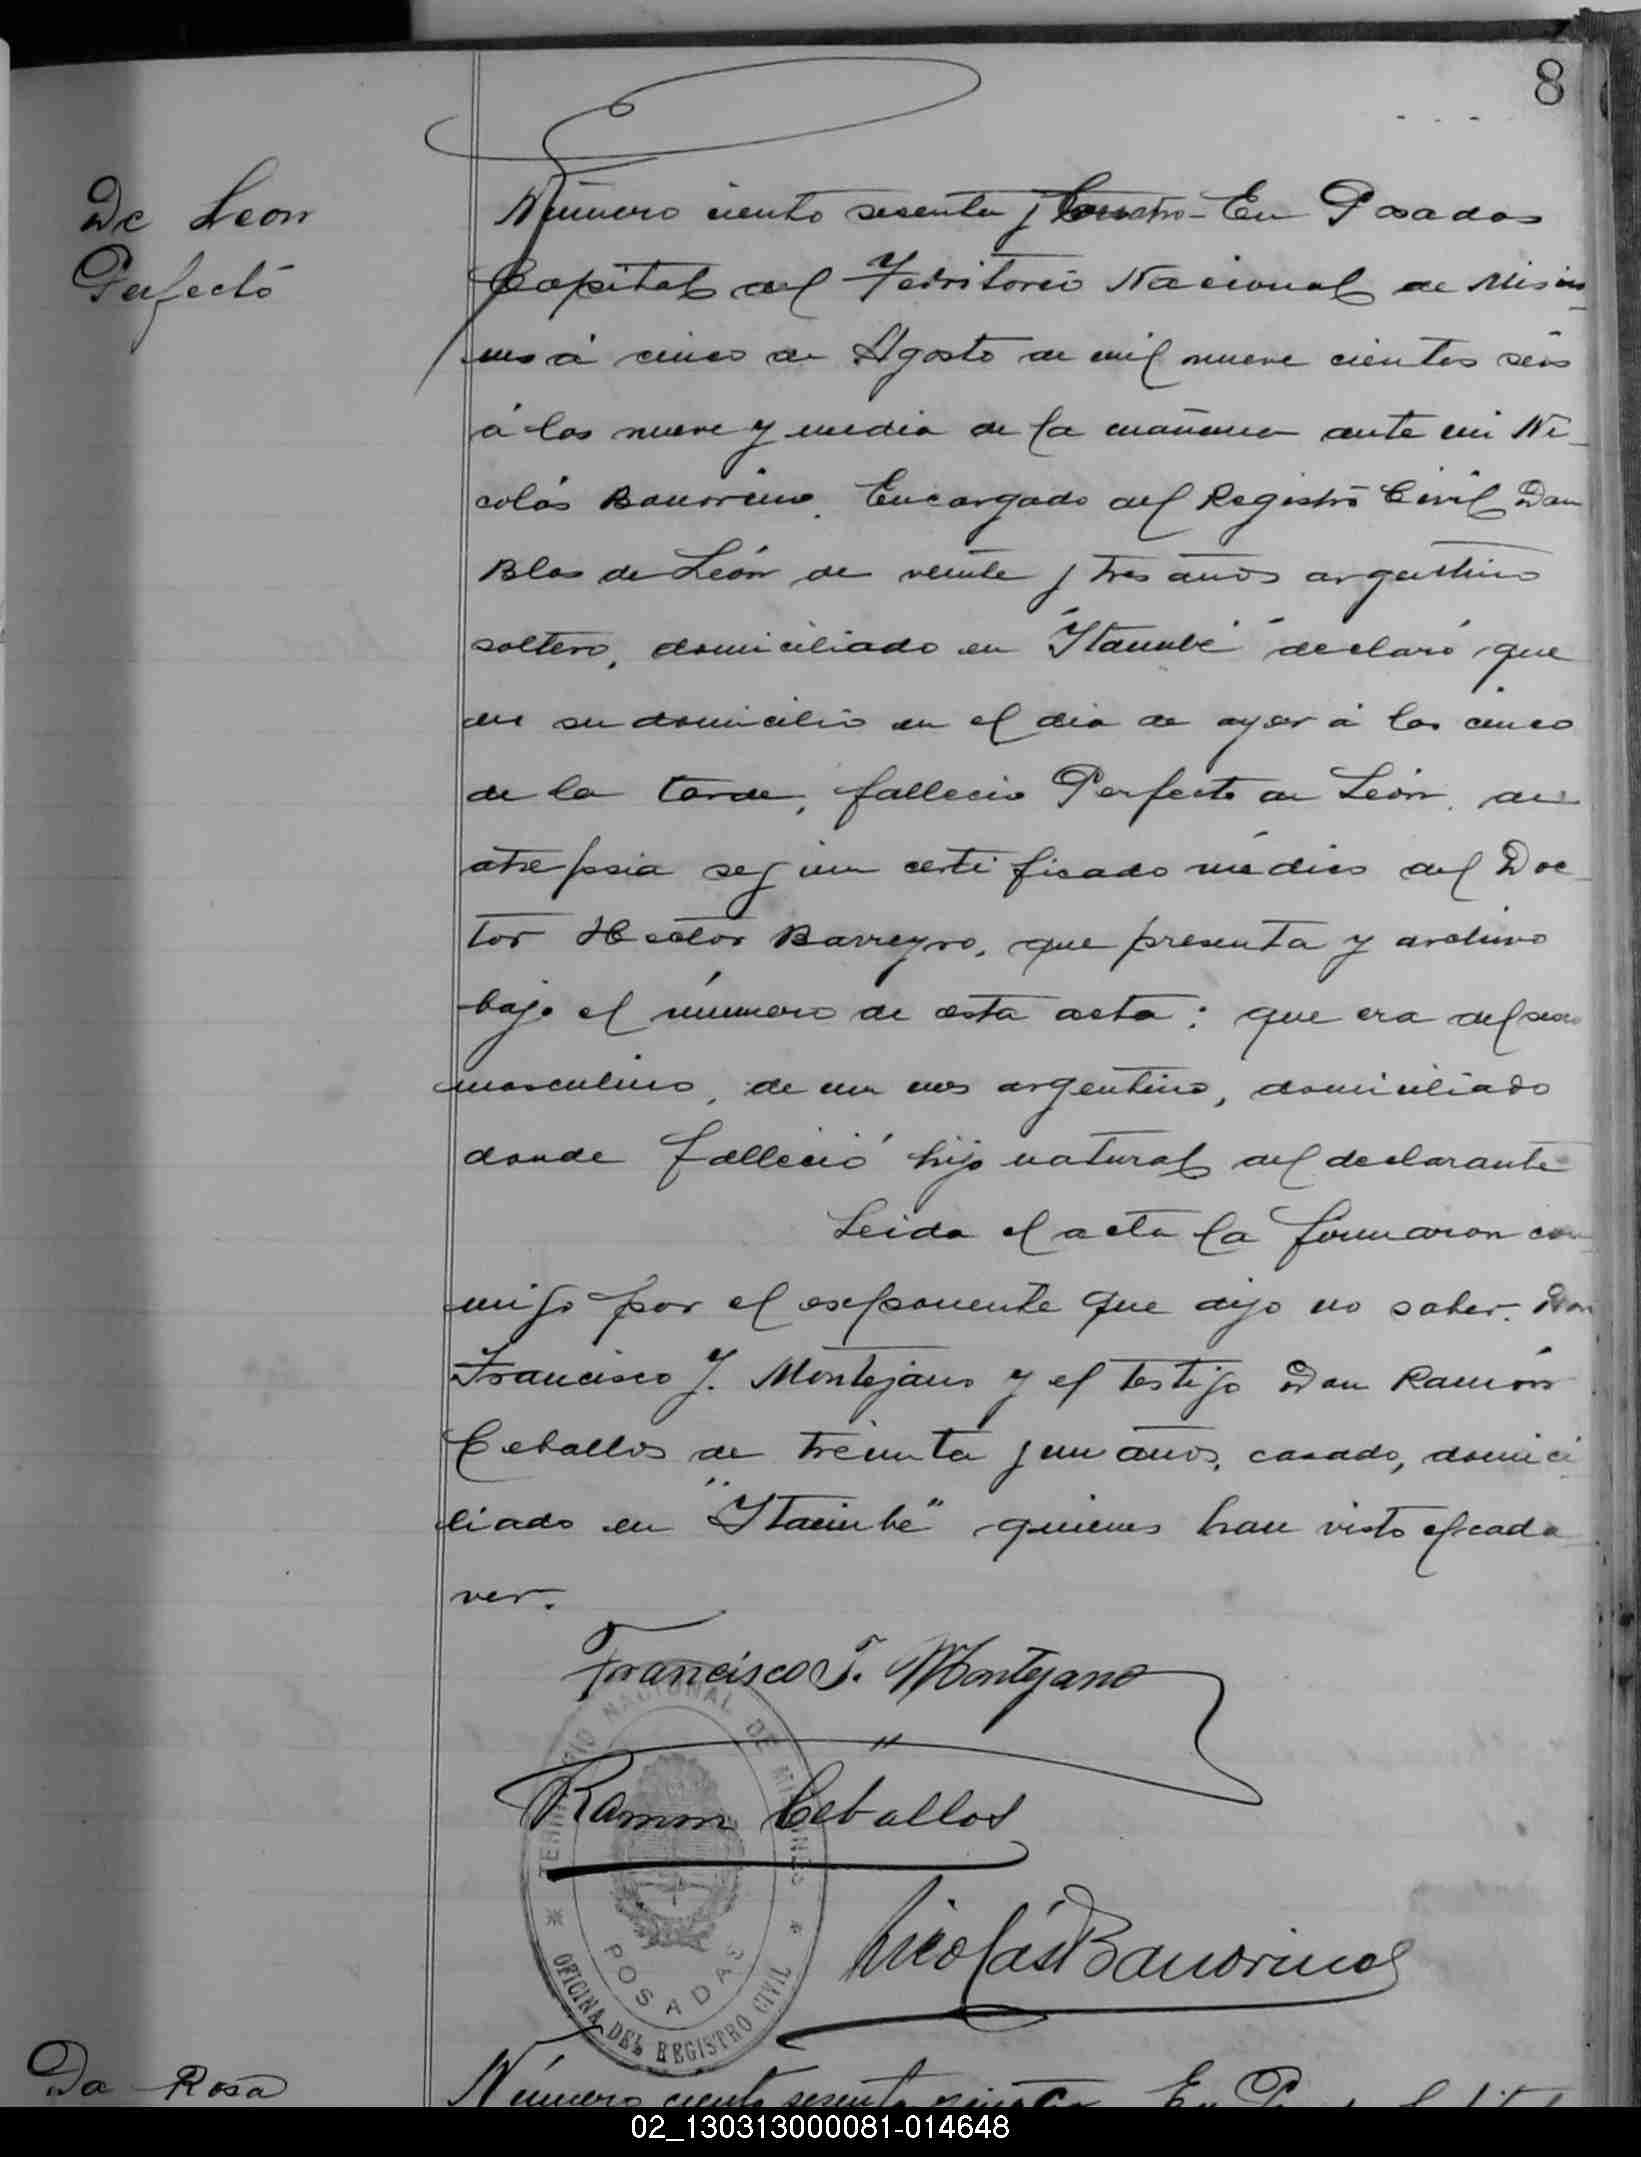 8
De Leon
Perfecto
Número ciento sesenta y cuatro - En Posadas
Capital del Territorio Nacional de Mision
nes á cinco de Agosto de mil nueve cientos seis
á las nueve y media de la mañana ante mi Ni-
colás Bauorino, Encargado del Registro Civil, Don
Blas de León de veinte y tres años argentino
soltero, domiciliado en "Itaimbé" declaró que
en su domicilio en el dia de ayer á las cinco
de la tarde, fallecio Perfecto de León, de
atrepsia segun certificado médico del Doc-
tor Hector Barreyro, que presenta y archivo
bajo el número de esta acta: que era del sexo
masculino, de un mes argentino, domiciliado
donde falleció hijo natural del declarante
Leida el acta la firmaron con
migo por el exponente que dijo no saber. Don
Francisco J. Montejano y el testigo Don Ramón
Ceballos de treinta y un años, casado, domici
liado en "Itaimbé" quienes han visto el cada
ver.
Francisco J. Montejano
Ramon Ceballos
Nicolás Bauorino
TERRITORIO NACIONAL DE MISIONES
POSADAS
OFICINA DEL REGISTRO CIVIL
Da Rosa
Número ciento sesenta y cinco En
02_130313000081-014648